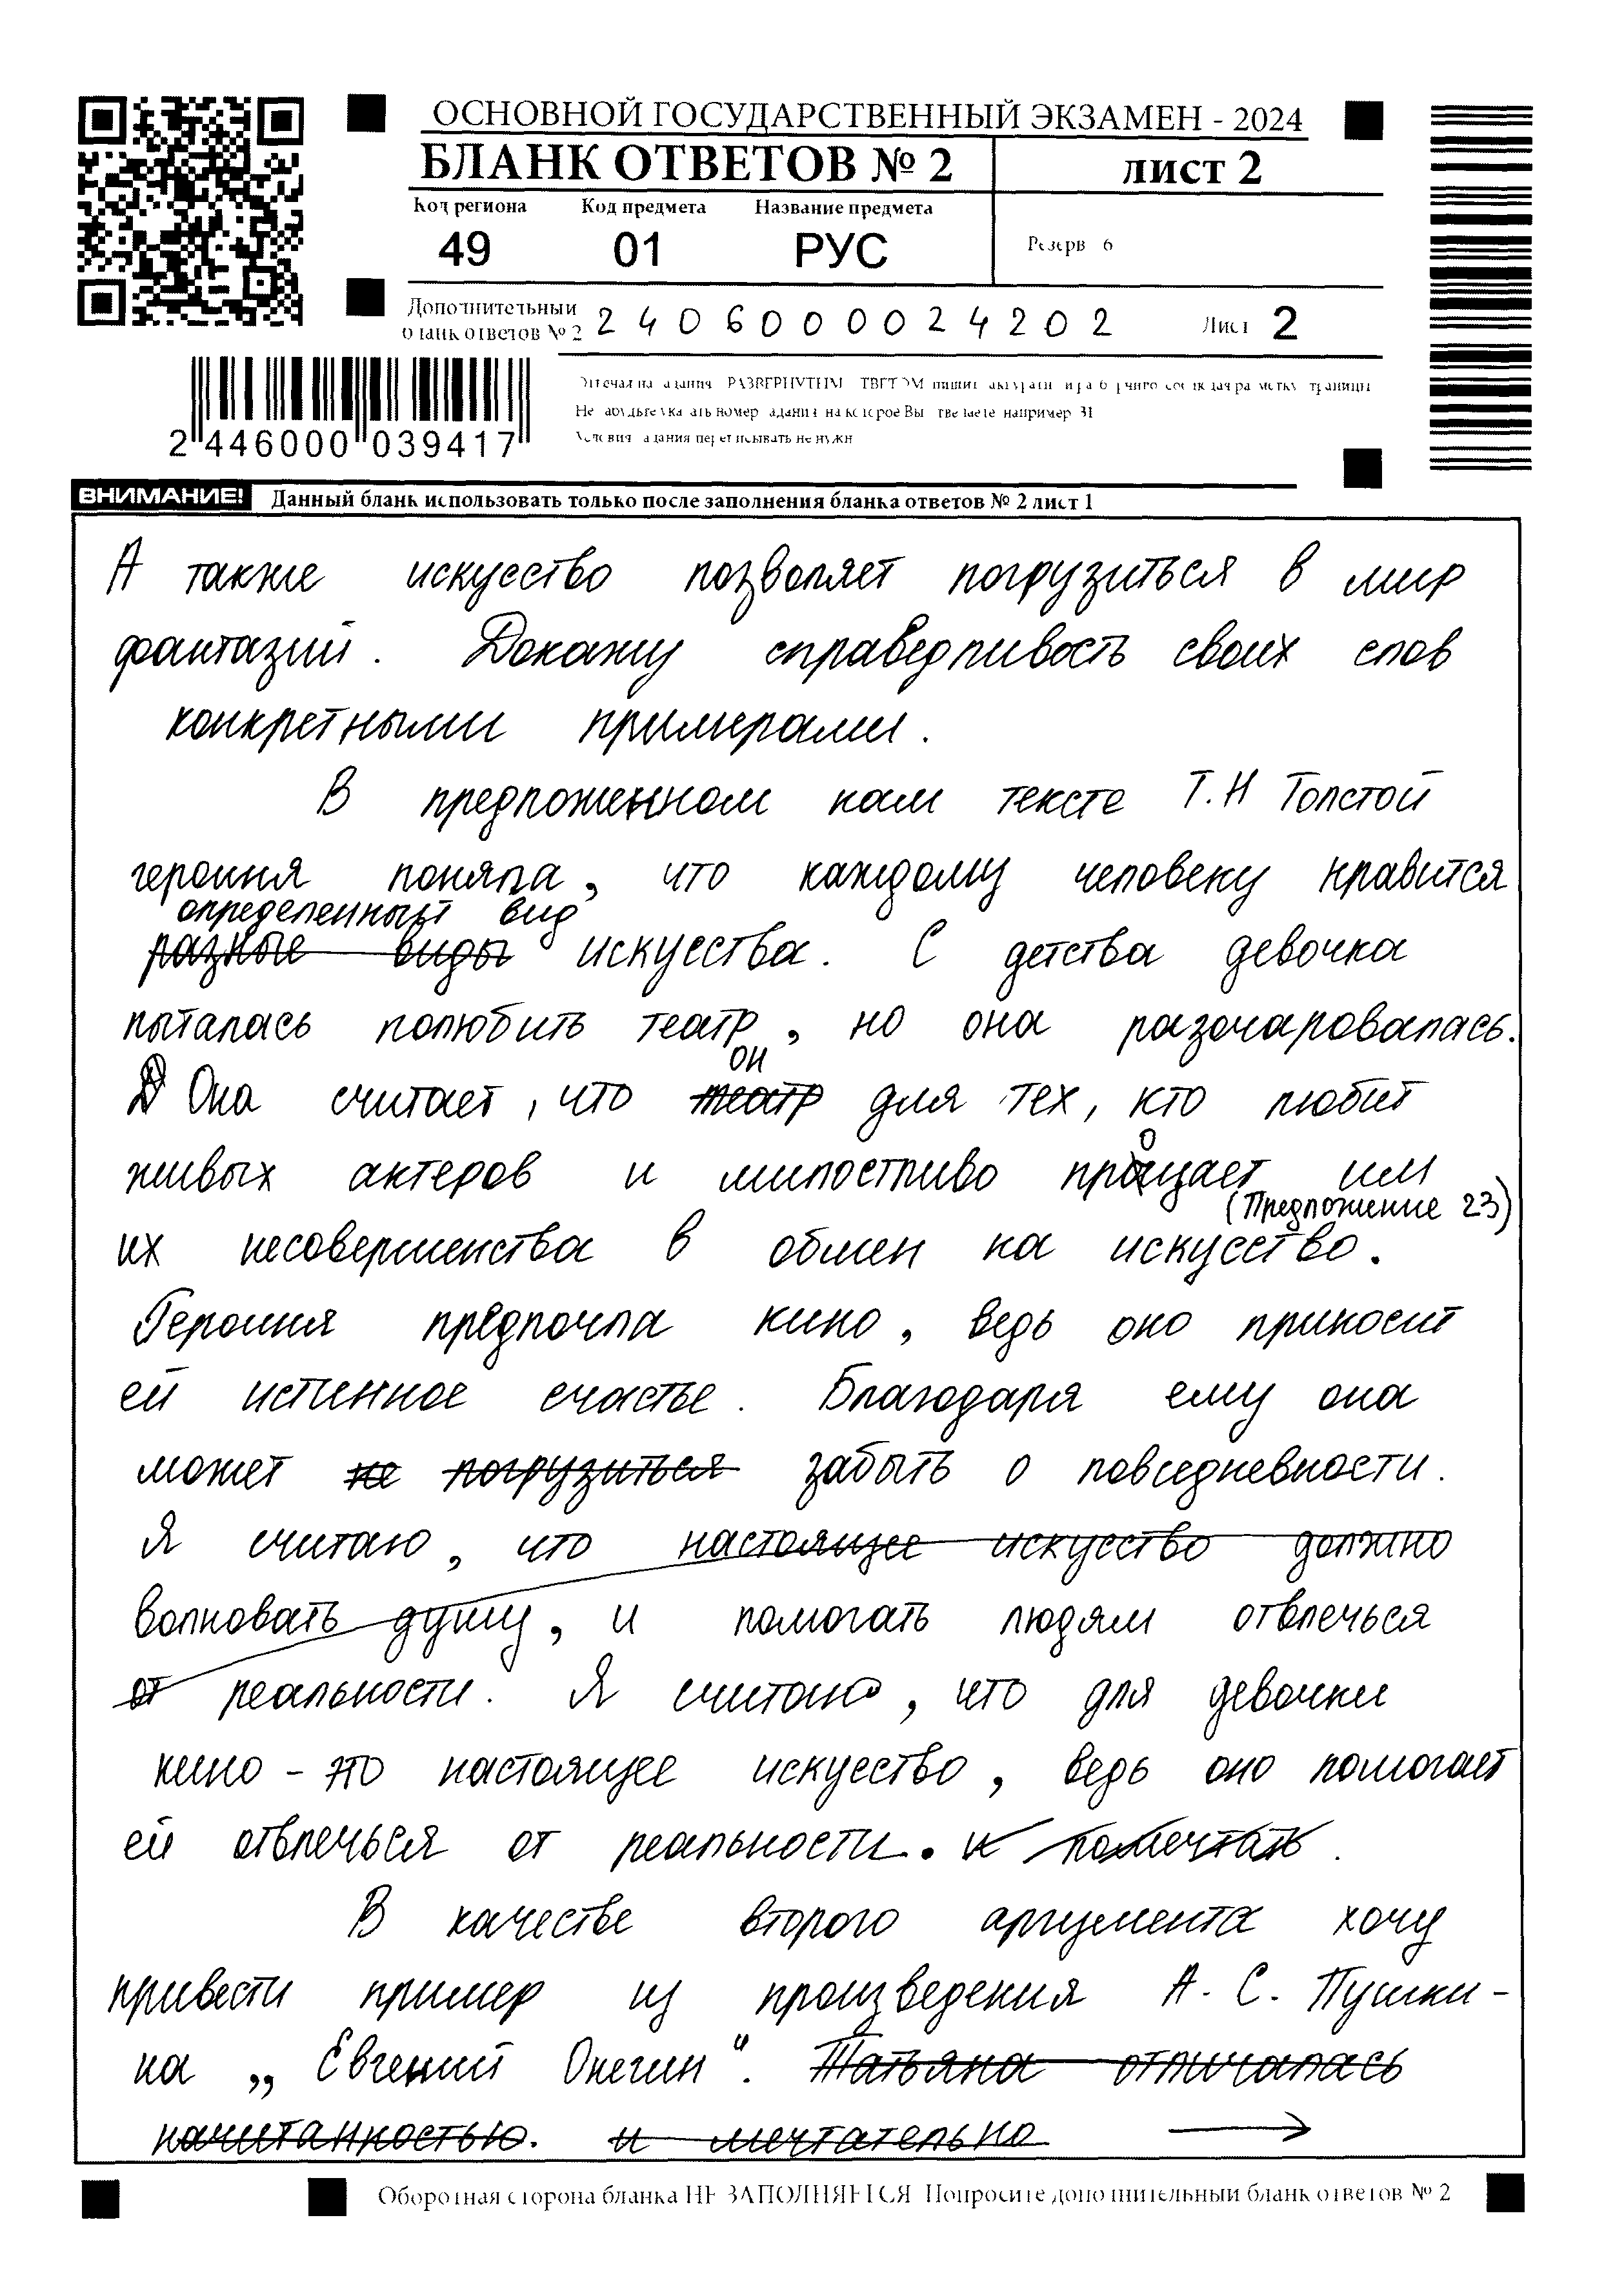 ОСНОВНОЙ ГОСУДАРСТВЕННЫЙ ЭКЗАМЕН - 2024
БЛАНК ОТВЕТОВ № 2
лист 2
Код региона Код предмета Название предмета
49 01 РУС
Резерв 6
Дополнительный
бланк ответов № 2
2406000024202
Лист 2
2 446000 039417
ВНИМАНИЕ! Данный бланк использовать только после заполнения бланка ответов № 2 лист 1
А также искусство позволяет погрузиться в мир
фантазий. Докажу справедливость своих слов
конкретными примерами.
В предложенном нам тексте Т.Н Толстой
героиня поняла, что каждому человеку нравится
определенный вид
разные виды искусства. С детства девочка
пыталась полюбить театр, но она разочаровалась.
он
Она считает, что театр для тех, кто любит
живых актеров и милостливо прощает им
(Предложение 23)
их несовершенства в обмен на искусство.
Героиня предпочла кино, ведь оно приносит
ей истинное счастье. Благодаря ему она
может не погрузиться забыть о повседневности.
Я считаю, что настоящее искусство должно
волновать душу, и помогать людям отвлечься
от реальности. Я считаю, что для девочки
кино - это настоящее искусство, ведь оно помогает
ей отвлечься от реальности. и помечтать.
В качестве второго аргумента хочу
привести пример из произведения А. С. Пушки-
на „Евгений Онегин". Татьяна отличалась
начитанностью. и мечтательно →
Оборотная сторона бланка НЕ ЗАПОЛНЯЕТСЯ Попросите дополнительный бланк ответов № 2